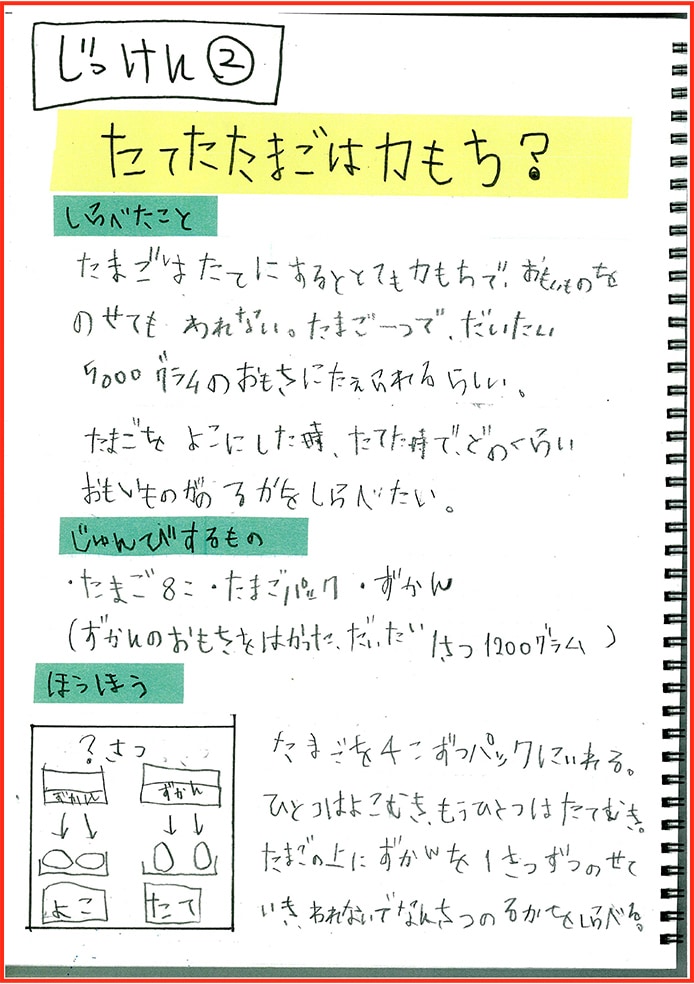 じっけん②
たてたたまごは力もち?
しらべたこと
たまごはたてにするととても力もちで、おもいものを
のせてもわれない。たまご一つで、だいたい
5000グラムのおもさにたえられるらしい。
たまごをよこにした時、たてた時で、どのくらい
おもいものがのるかをしらべたい。
じゅんびするもの
・たまご8こ・たまごパック・ずかん
(ずかんのおもさをはかった、だいたい1さつ1200グラム)
ほうほう
?さつ
ずかん ずかん
よこ たて
たまごを4こずつパックにいれる。
ひとつはよこむき、もうひとつはたてむき。
たまごの上にずかんを1さつずつのせて
いき、われないでなんさつのるかをしらべる。